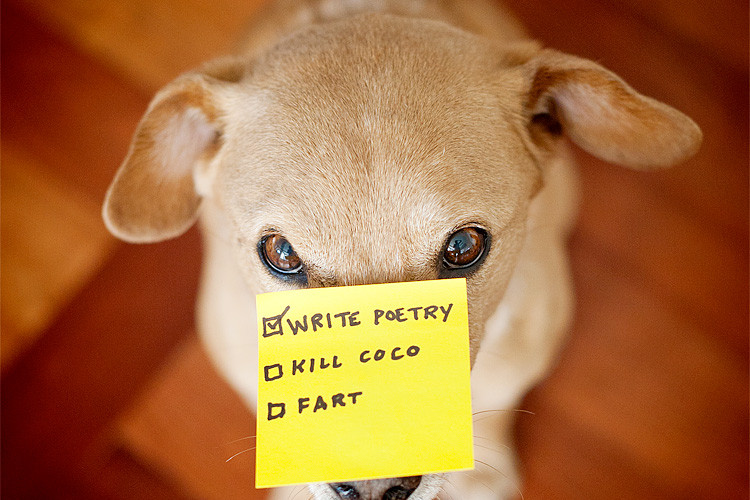 ☑ WRITE POETRY
☐ KILL COCO
☐ FART